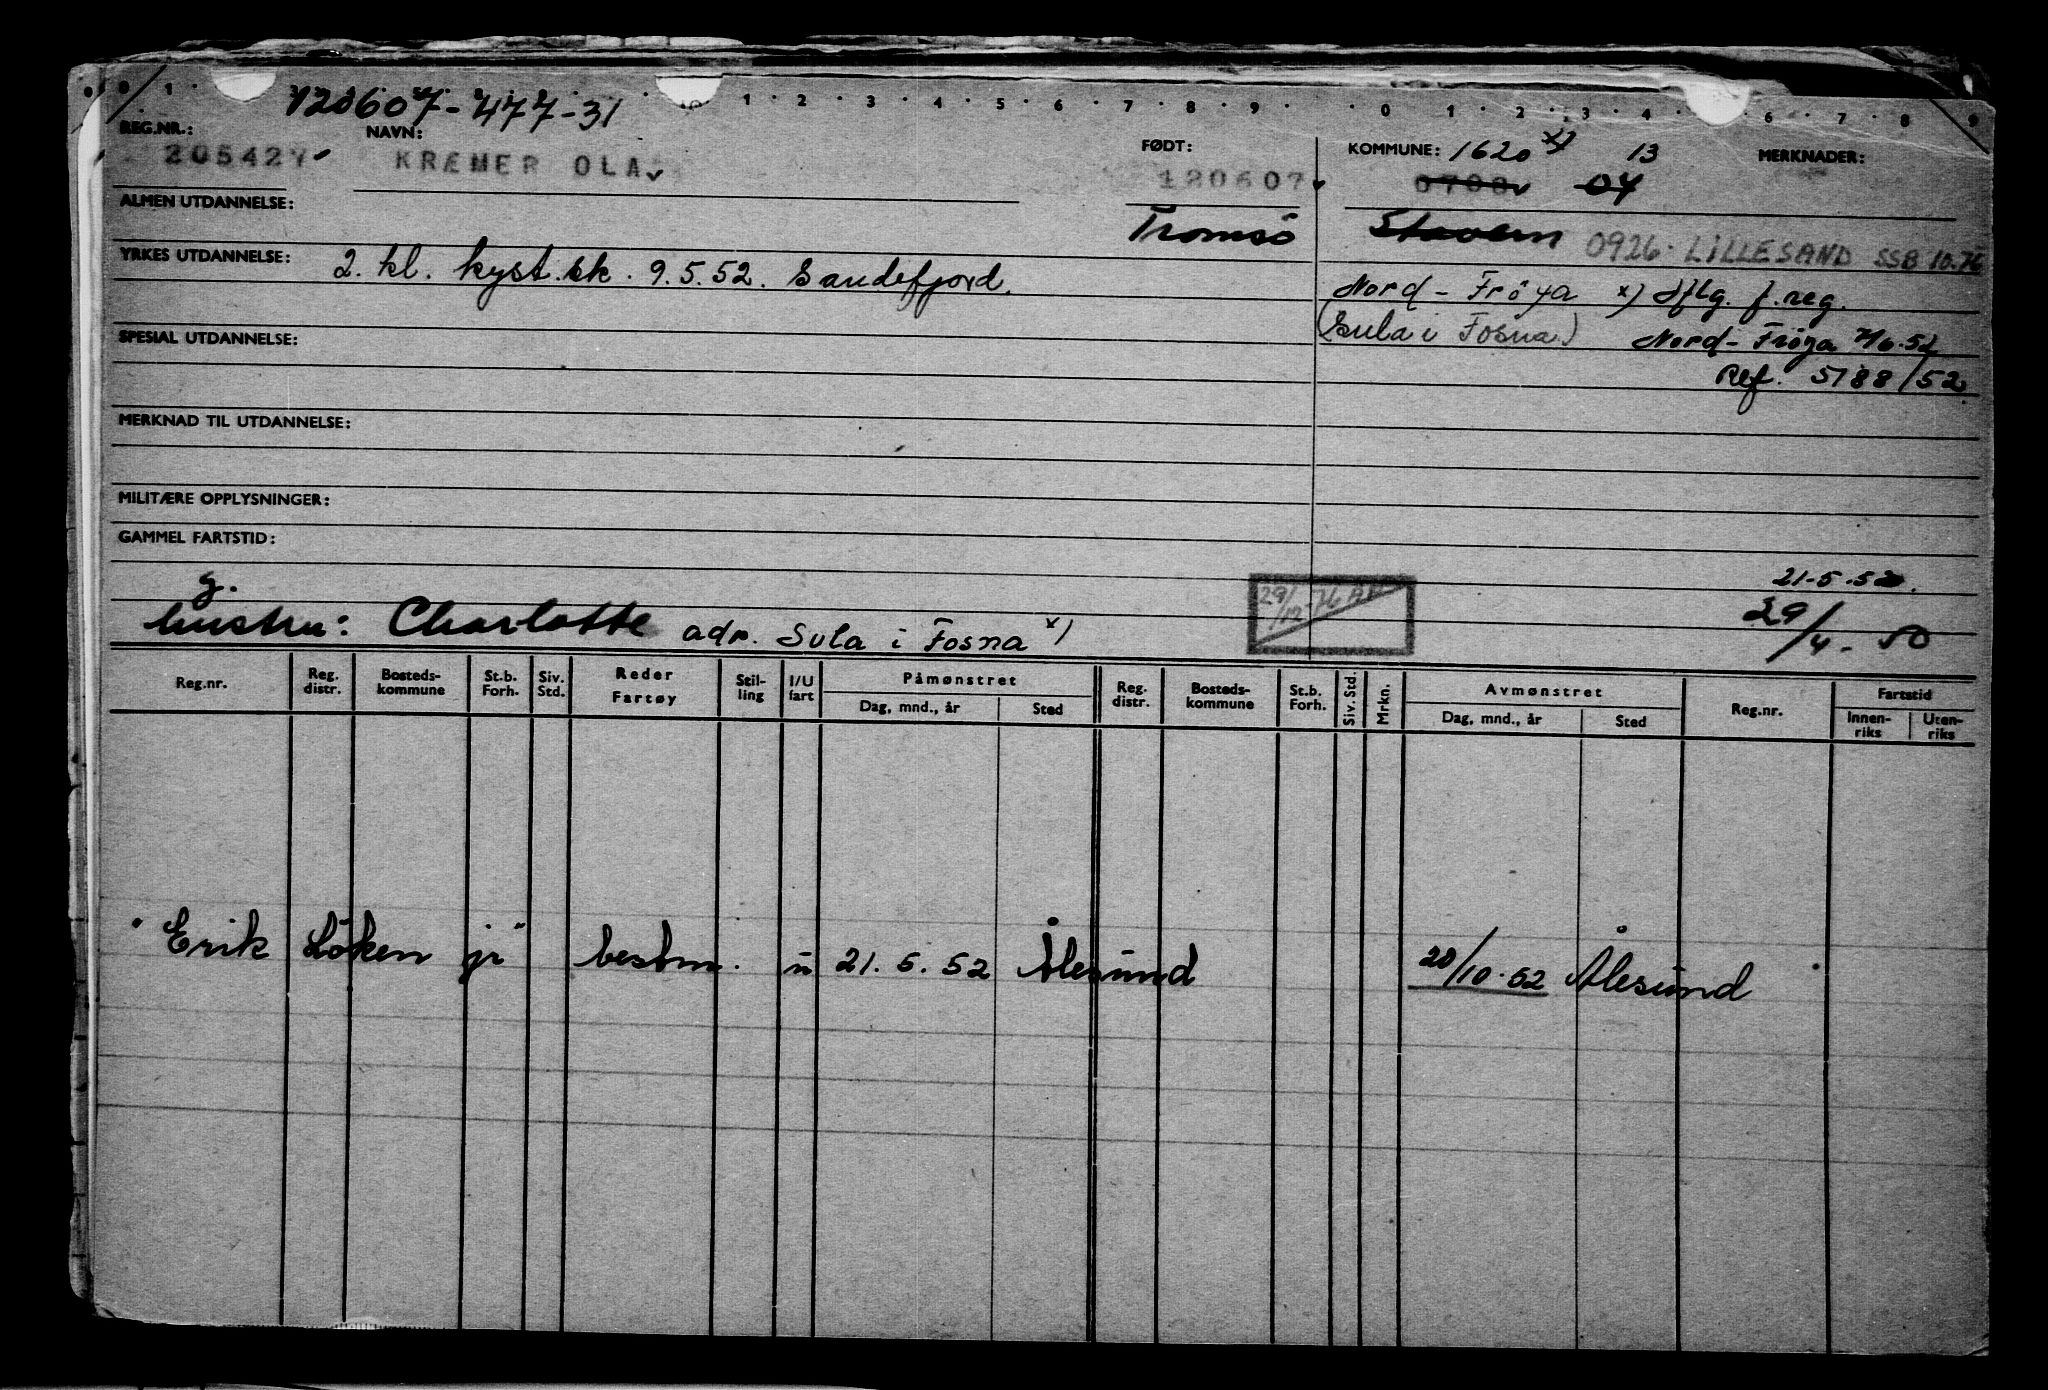 0 1 1 2 3 4 5 6 7 8 9 0 1 2 3 4 6 7 8 9
120607-477-31
REG.NR.: NAVN: FØDT: KOMMUNE: 1620 x) 13 MERKNADER:
205427 KRÆMER OLA 120607 0708 07
ALMEN UTDANNELSE: Tromsö Stavern 0926. LILLESAND SSB 10.76
YRKES UTDANNELSE: 2. kl. kyst.sk. 9.5.52. Sandefjord. Nord-Fröya x) iflg. f.reg.
(Sula i Fosna.) Nord-Fröya 7/6.52
SPESIAL UTDANNELSE:
Ref. 5188/52.
MERKNAD TIL UTDANNELSE:
MILITÆRE OPPLYSNINGER:
GAMMEL FARTSTID:
g. 29/12-76 21-5.52.
hustru: Charlotte adr. Sula i Fosna x) 29/4-50
Reg.nr. Reg. distr. Bosteds-kommune St.b. Forh. Siv. Std. Reder Fartøy Stil-ling I/U fart Påmønstret Dag, mnd., år Sted Reg. distr. Bosteds-kommune St.b. Forh. Siv. Std. Mrkn. Avmønstret Dag, mnd., år Sted Reg.nr. Fartstid Innen-riks Uten-riks
"Erik Löken jr" bestm. u 21.5.52 Ålesund 20/10.52 Ålesund